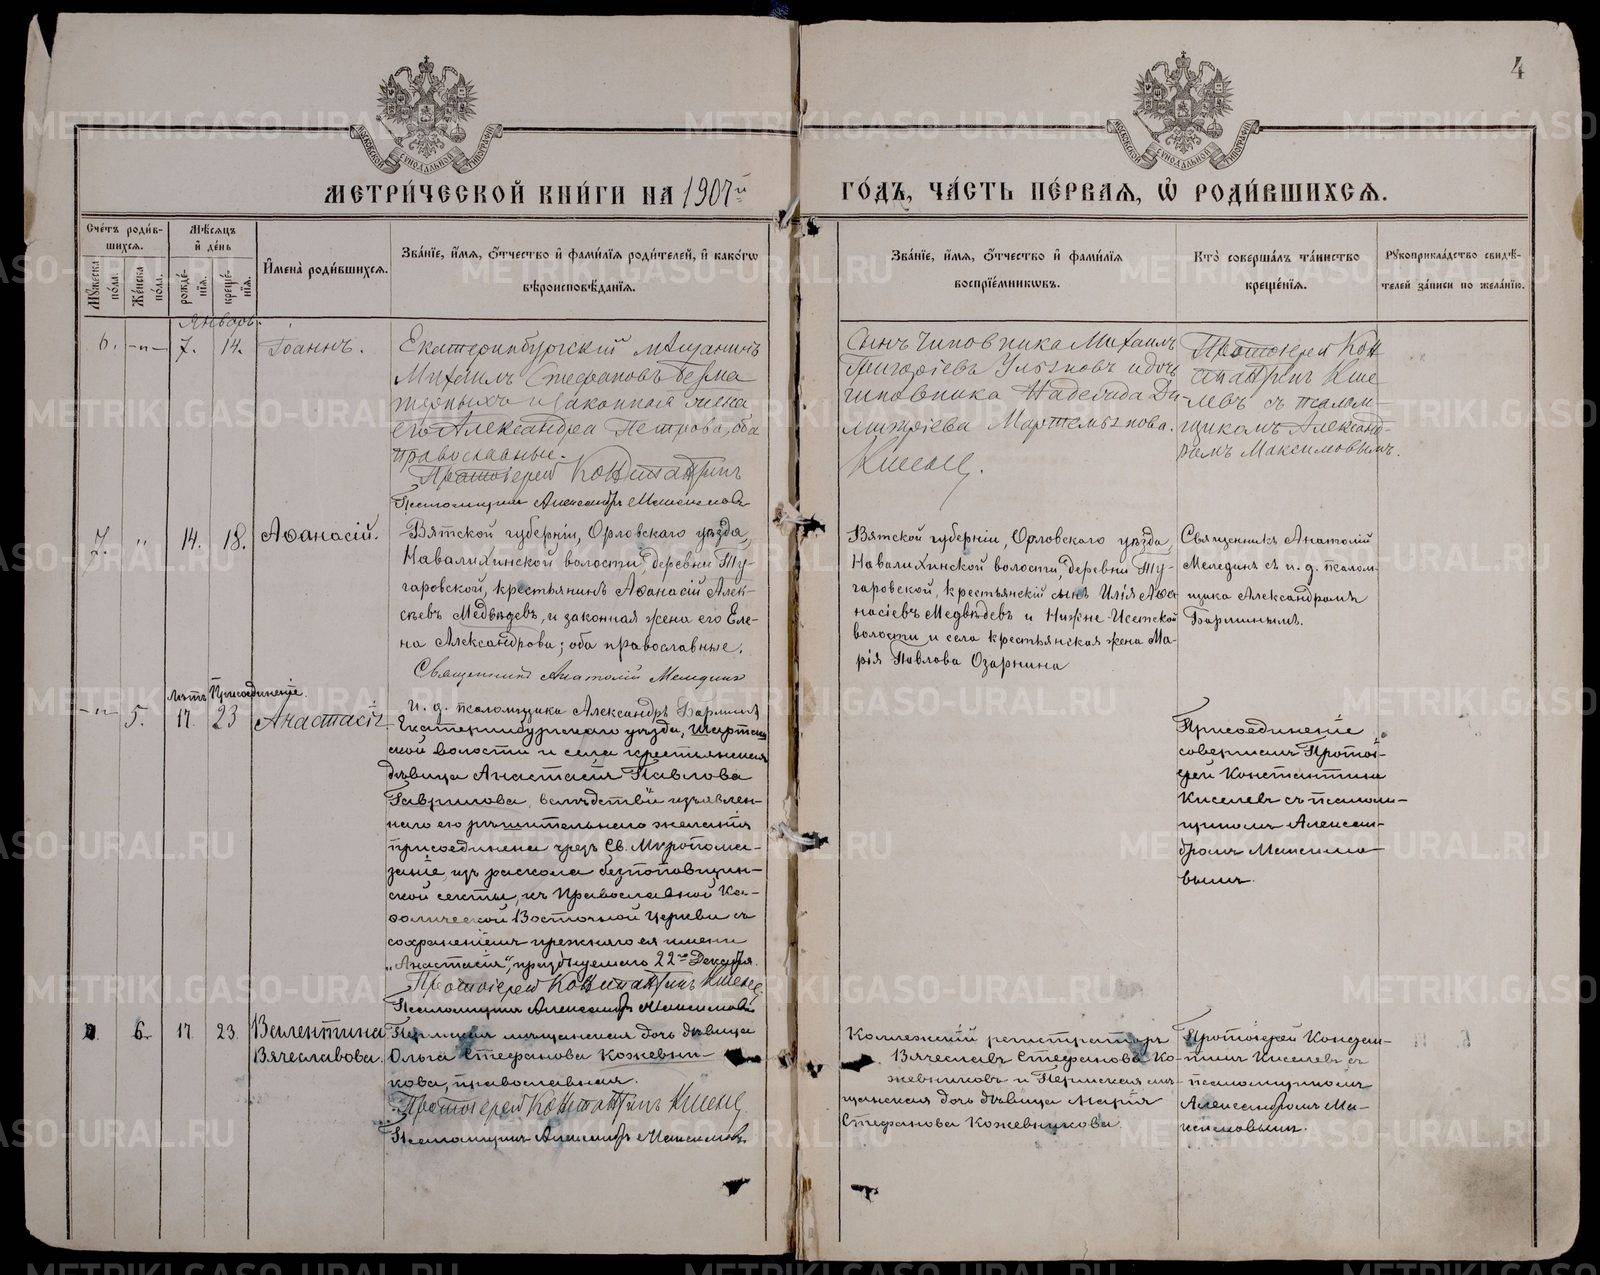 4
МОСКОВСКОЙ СѴНОДАЛЬНОЙ ТИПОГРАФІИ
МОСКОВСКОЙ СѴНОДАЛЬНОЙ ТИПОГРАФІИ
МЕТРИ́ЧЕСКОЙ КНИ́ГИ НА 1907й
ГО́ДЪ, ЧА́СТЬ ПЕ́РВАЯ, Ѡ҆ РОДИ́ВШИХСѦ.
Сче́тъ роди́в-
шихсѧ.
Мѹ́жеска по́ла.
Же́нска по́ла.
Мѣ́сѧцъ
и҆ де́нь
рожде́-
нїѧ.
креще́-
нїѧ.
И҆мена̀ роди́вшихсѧ.
Зва́нїе, и҆́мѧ, ѻ҆́тчество и҆ фами́лїѧ роди́телей, и҆ како́гѡ
вѣроисповѣ́данїѧ.
Зва́нїе, и҆́мѧ, ѻ҆́тчество и҆ фами́лїѧ
воспрїе́мникѡвъ.
Кто̀ соверша́лъ та́инство
креще́нїѧ.
Рѹкоприкла́дство свидѣ́-
телей за́писи по жела́нїю.
Январь.
6. -„- 7. 14. Іоаннъ.
Екатеринбургскій мѣщанинъ
Михаилъ Стефановъ
и законная жена
его Александра Петрова, оба
православные.
Протоіерей Константинъ
Псаломщикъ Александръ Максимовъ
Сынъ Чиновника Михаилъ
Григоріевъ Ульяновъ и дочь
чиновника Надежда Ди-
митріева Мартемьянова.
Киселев.
Протоіерей Кон
стантинъ Кисе
левъ съ псалом-
щикомъ Александ-
ромъ Максимовымъ.
7. „ 14. 18. Аѳанасій.
Вятской губерніи, Орловскаго уѣзда,
Навалихинской волости, деревни Ту-
гаровской, крестьянинъ Аѳанасій Алек-
сѣевъ Медвѣдевъ, и законная жена его Еле-
на Александрова; оба православные.
Священникъ Анатолій Меледин
И. д. псаломщика Александръ Бармин
Вятской губерніи, Орловскаго уѣзда,
Навалихинской волости, деревни Ту-
гаровской, крестьянскій сынъ Илія Аѳа-
насіевъ Медвѣдевъ и Нижне-Исетской
волости и села крестьянская жена Ма-
рія Павлова Озорнина
Священникъ Анатолій
Мелединъ съ и. д. псалом-
щика Александромъ
Барминымъ.
Лѣтъ Присоединеніе.
-„- 5. 17. 23 Анастасія.
Екатеринбургскаго уѣзда, Шарташ
ской волости и села крестьянская
дѣвица Анастасія Павлова
Гаврилова, вслѣдствіе изъявлен-
наго ею рѣшительнаго желанія
присоединена чрезъ Св. Мѵропома-
заніе, изъ раскола безпоповщин-
ской секты, къ Православной Ка-
ѳолической Восточной церкви съ
сохраненіемъ прежняго ея имени
„Анастасія“, празднуемаго 22го Декабря.
Протоіерей Константинъ Киселев.
Псаломщикъ Александръ Максимовъ
Присоединеніе
совершилъ Протоі-
ерей Константинъ
Киселевъ съ псалом-
щикомъ Алексан-
дромъ Максимо-
вымъ.
6. 17. 23. Валентина
Вячеславова.
Пермская мѣщанская дочь дѣвица
Ольга Стефанова Кожевни-
кова, православная.
Протоіерей Константинъ Киселев.
Псаломщикъ Александръ Максимовъ
Коллежскій регистраторъ
Вячеславъ Стефановъ Ко-
жевниковъ и Пермская мѣ-
щанская дочь дѣвица Марія
Стефанова Кожевникова.
Протоіерей Констан-
тинъ Киселевъ съ
псаломщикомъ
Александромъ Ма-
ксимовымъ.
METRIKI.GASO-URAL.RU